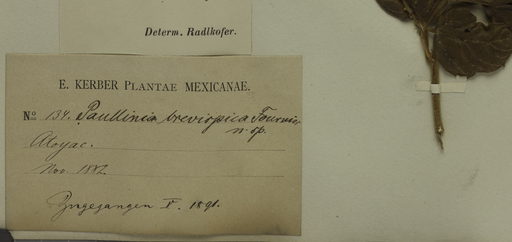 Determ. Radlkofer.
E. KERBER PLANTAE MEXICANAE.
No 134. Paullinia brevispica Fournier
n. sp.
Atoyac.
Nov. 1882
Zugegangen V. 1891.